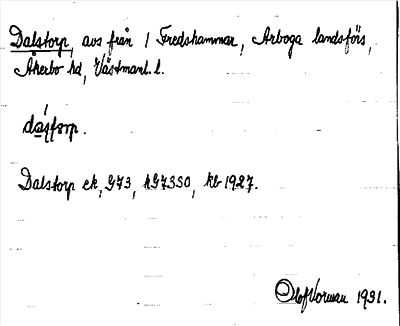 Dalstorp, avs från 1 Fredshammar, Arboga landsförs,
Åkerbo hd, Västmanl. l.
Dalstorp ek, G73, kG73SO, kb 1927.
Olof Norman 1931.